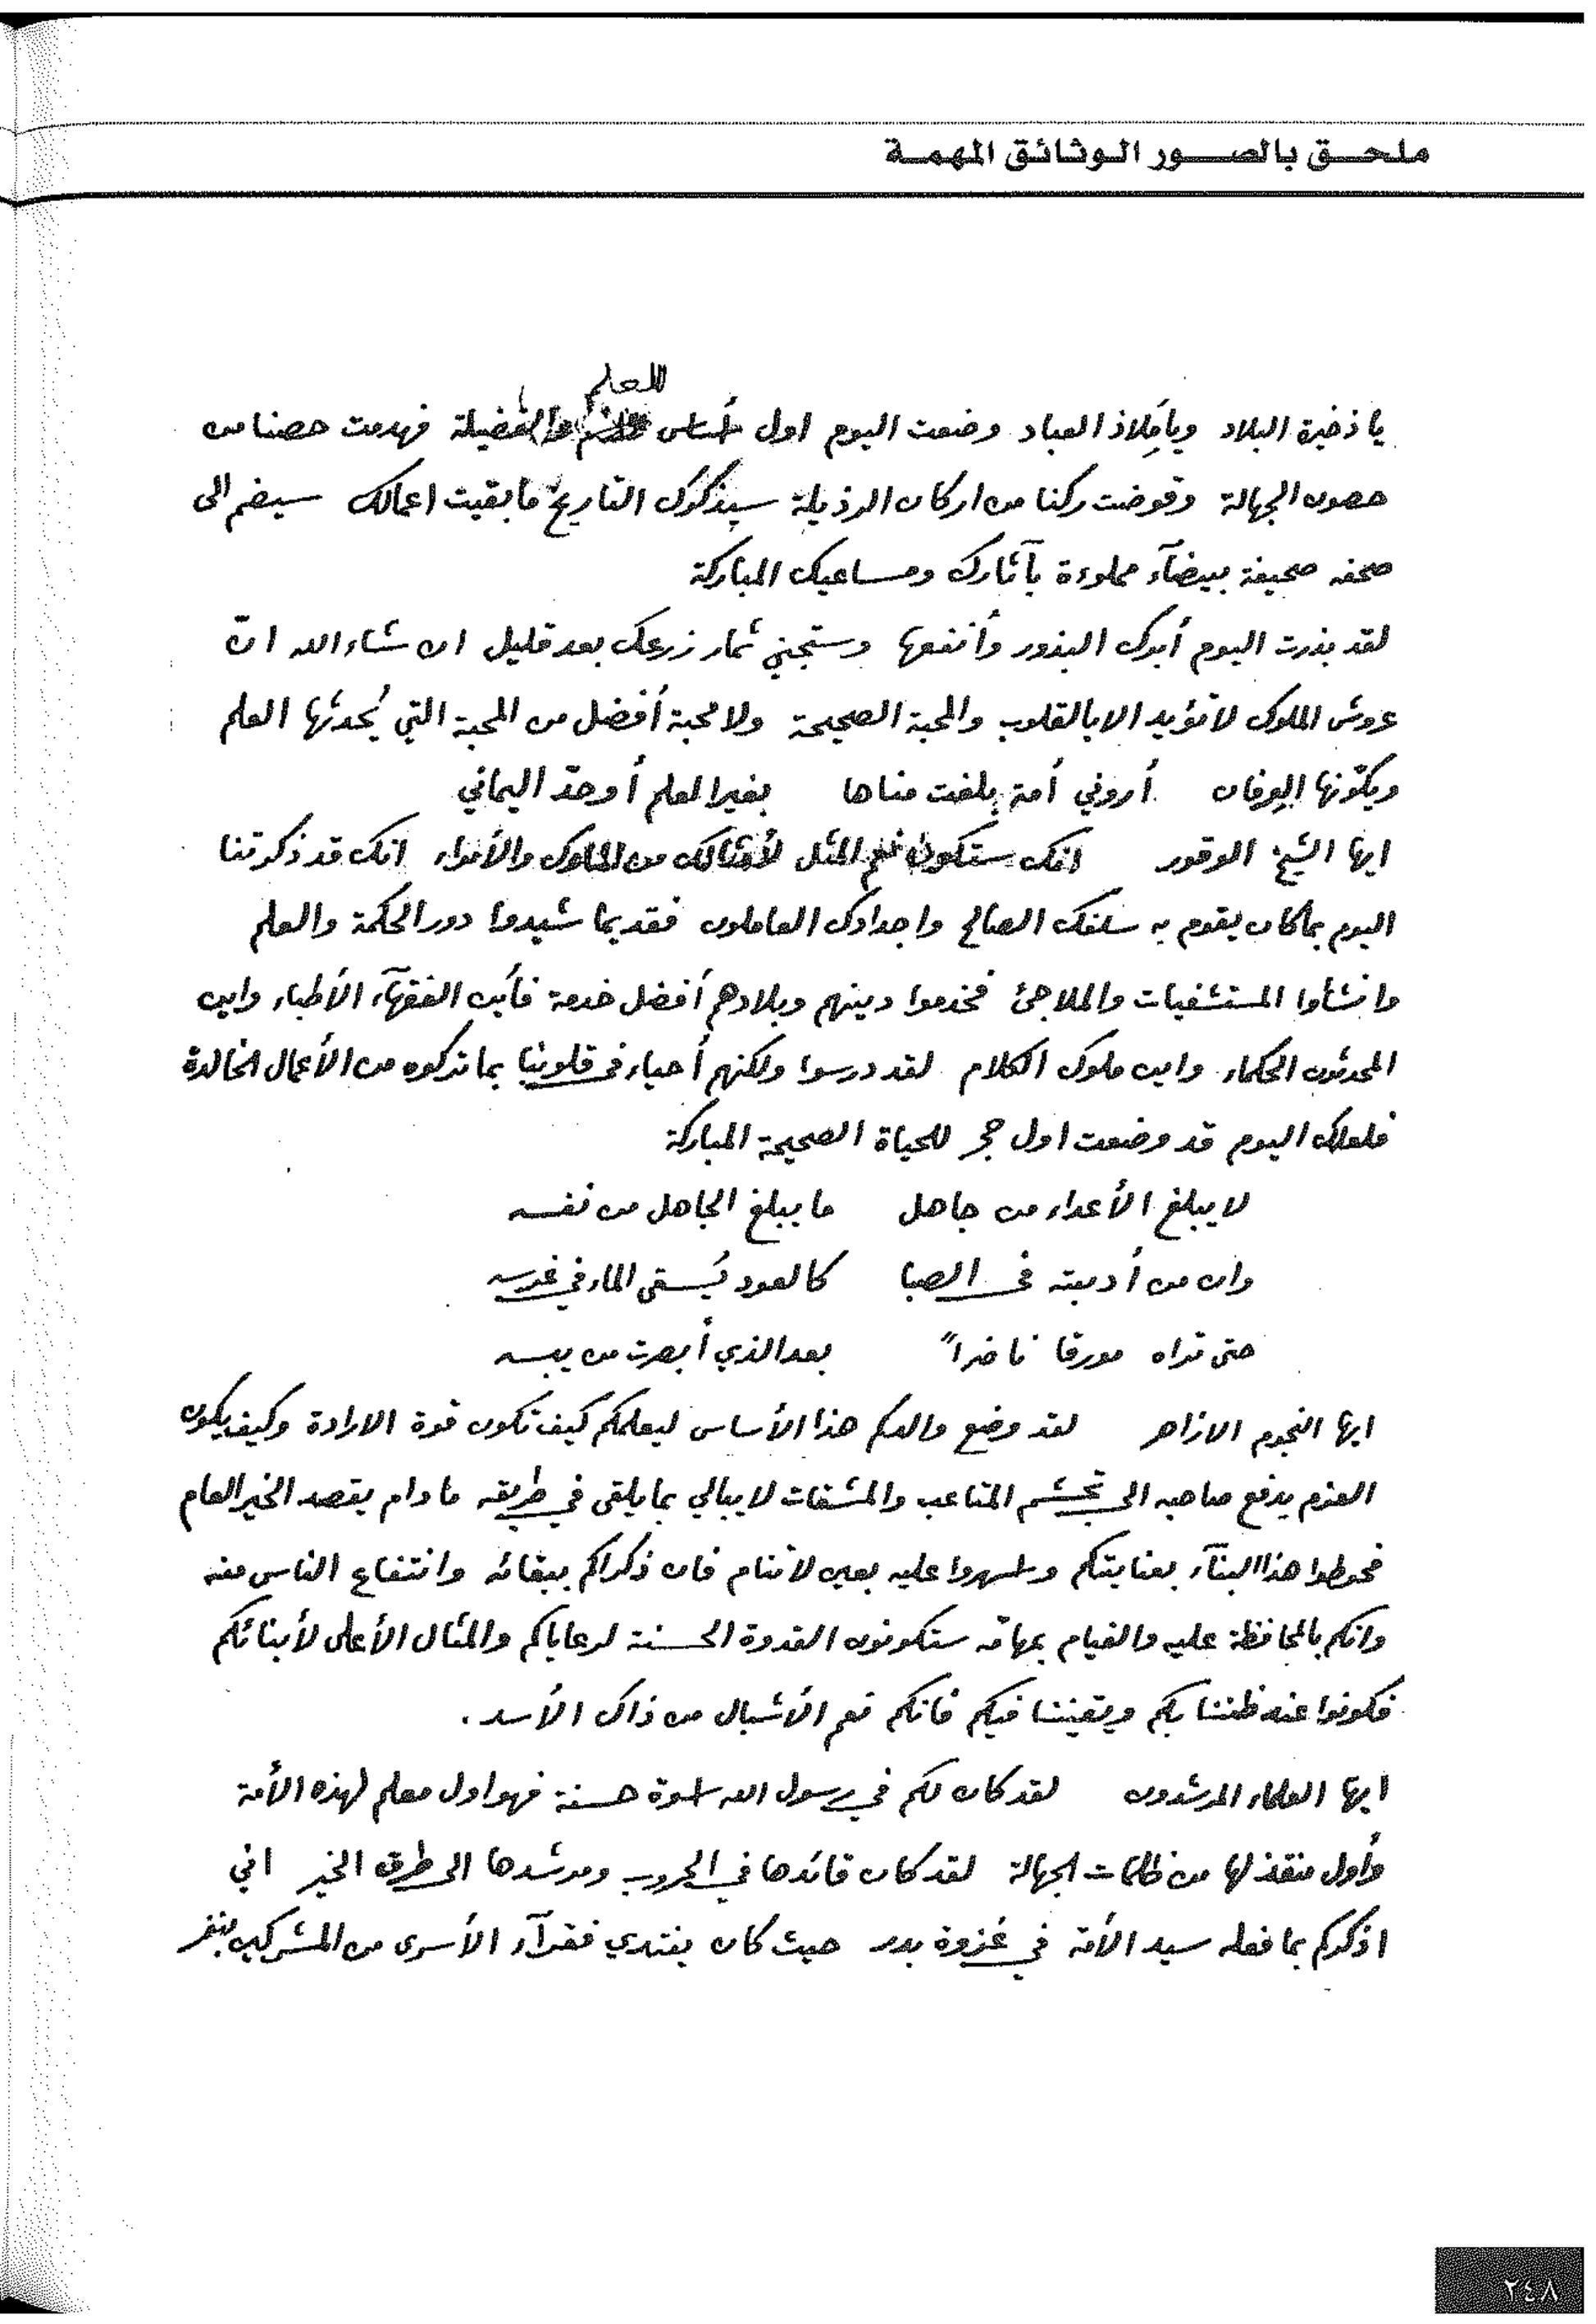 ملحق بالصور الوثائق المهمة
للعلم
يا ذخيرة البلاد ويا ملاذ العباد وضعت اليوم اول أساس والفضيلة فهدمت حصنا من
حصون الجهالة وقوضت ركنا من اركان الرذيلة سيذكرك التاريخ ما بقيت اعمالك سيضم الى
صحفه صحيفة بيضآء مملوءة بآثارك ومساعيك المباركة
لقد بذرت اليوم أبرك البذور وأنفعها وستجني ثمار زرعك بعد قليل ان شاء الله انّ
عروش الملوك لا تؤيد الا بالقلوب والمحبة الصحيحة ولا محبة أفضل من المحبة التي يُحدثها العلم
ويكوّنها العرفان أروني أمة بلغت مناها بغير العلم أو حدّ اليماني
ايها الشيخ الوقور انك ستكون نعم المثل لأمثالك من الملوك والأمراء انك قد ذكرتنا
اليوم بما كان يقوم به سلفك الصالح واجدادك العاملون فقديما شيدوا دور الحكمة والعلم
وانشأوا المستشفيات والملاجئ فخدموا دينهم وبلادهم أفضل خدمة فأين الفقهآء الأطباء واين
المحدثون الحكماء واين ملوك الكلام لقد درسوا ولكنهم أحياء في قلوبنا بما تركوه من الأعمال الخالدة
فلعلك اليوم قد وضعت اول حجر للحياة الصحيحة المباركة
لا يبلغ الأعداء من جاهل ما يبلغ الجاهل من نفسه
وان من أدبته في الصبا كالعود يُسقى الماء في غرسه
حتى تراه مورقا ناضراً بعد الذي أبصرت من يبسه
ايها النجوم الازاهر لقد وضع والدكم هذا الأساس ليعلمكم كيف تكون قوة الارادة وكيف يكون
العزم يدفع صاحبه الى تجشم المتاعب والمشقات لا يبالي بما يلقى في طريقه ما دام يقصد الخير العام
فحوطوا هذا البنآء بعنايتكم واسهروا عليه بعين لا تنام فان ذكراكم ببقائه وانتفاع الناس منه
وانكم بالمحافظة عليه والقيام بمهامّه ستكونون القدوة الحسنة لرعاياكم والمثال الأعلى لأبنائكم
فكونوا عند ظننا بكم ويقيننا فيكم فانكم نعم الأشبال من ذاك الأسد .
ايها العلماء المرشدون لقد كان لكم في رسول الله اسوة حسنة فهو اول معلم لهذه الأمة
وأول منقذ لها من ظلمات الجهالة لقد كان قائدها في الحروب ومرشدها الى طرق الخير اني
اذكركم بما فعله سيد الأمة في غزوة بدر حيث كان يفتدي فقرآء الأسرى من المشركين
٢٤٨